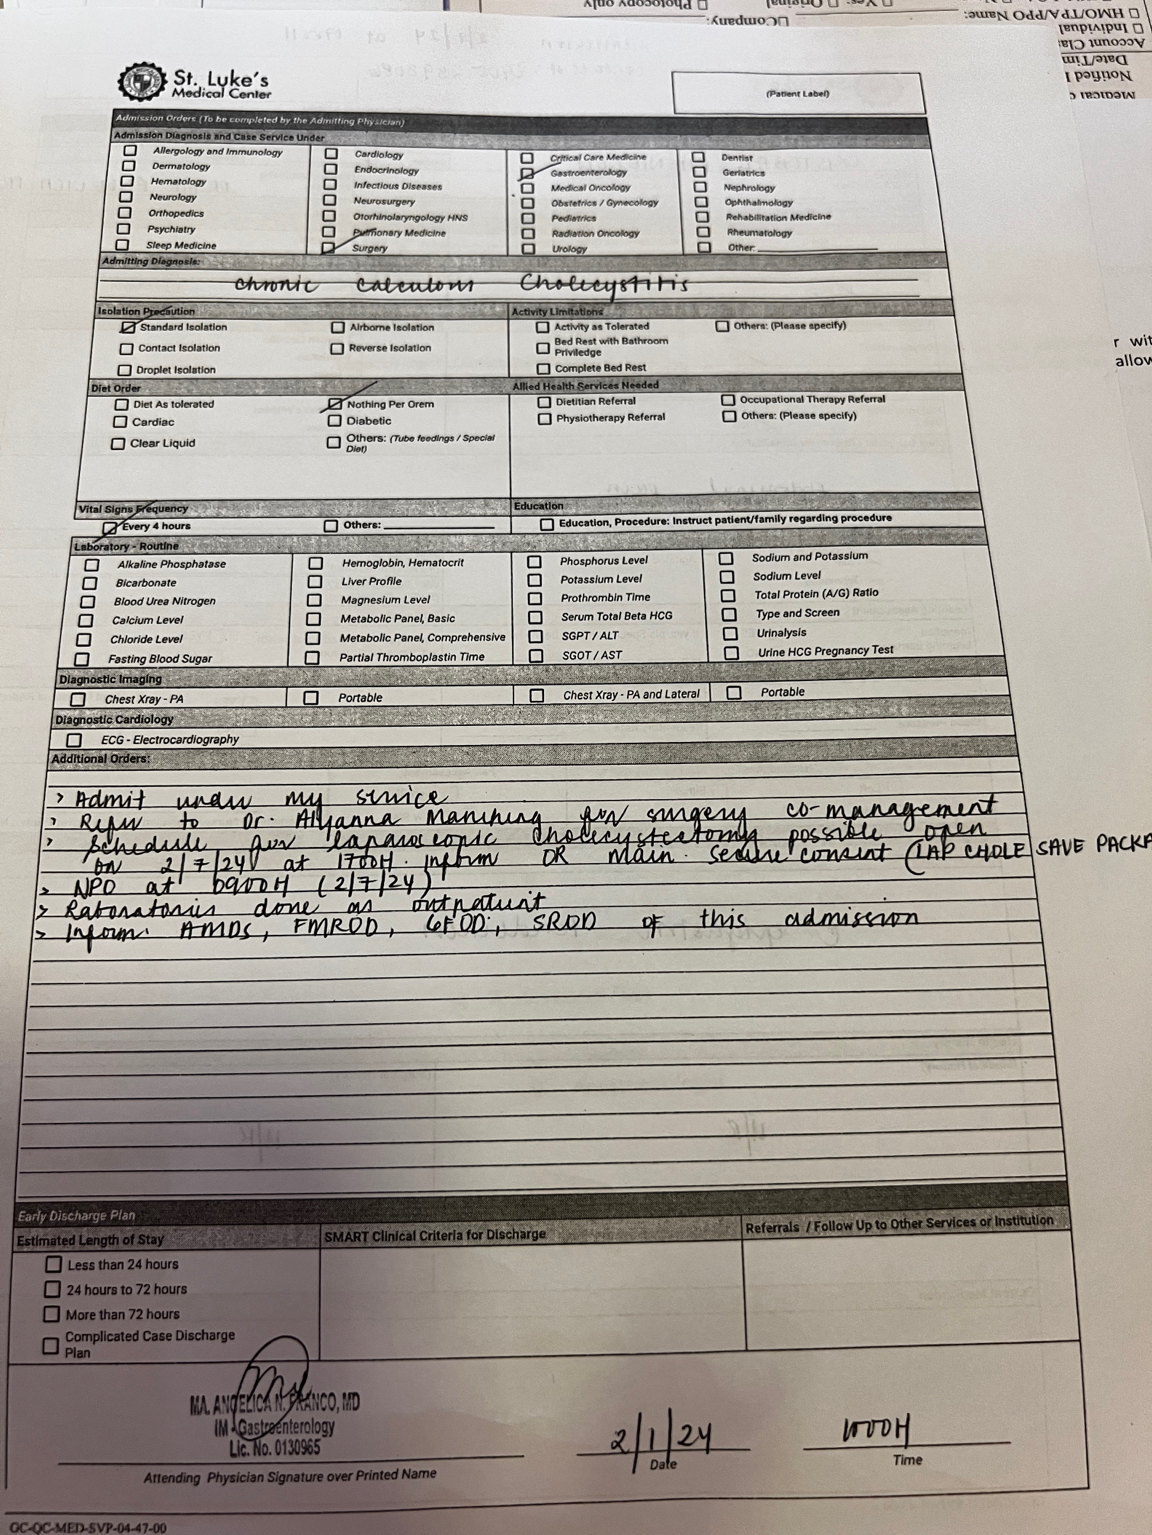 Photocopy only
Company:
HMO/TPA/PPO Name:
Individual
Date/Tim
St. Luke's
Medical Center
(Patient Label)
Admission Orders (To be completed by the Admitting Physician)
Admission Diagnosis and Case Service Under
Allergology and Immunology
Dermatology
Hematology
Neurology
Orthopedics
Psychiatry
Sleep Medicine
Cardiology
Endocrinology
Infectious Diseases
Neurosurgery
Otorhinolaryngology HNS
Pulmonary Medicine
Surgery
Critical Care Medicine
Gastroenterology
Medical Oncology
Obstetrics / Gynecology
Pediatrics
Radiation Oncology
Urology
Dentist
Geriatrics
Nephrology
Ophthalmology
Rehabilitation Medicine
Rheumatology
Other:
Admitting Diagnosis:
chronic calculous Cholecystitis
Isolation Precaution
Standard Isolation
Contact Isolation
Droplet Isolation
Airborne Isolation
Reverse Isolation
Activity Limitations
Activity as Tolerated
Bed Rest with Bathroom
Priviledge
Complete Bed Rest
Others: (Please specify)
Diet Order
Diet As tolerated
Cardiac
Clear Liquid
Nothing Per Orem
Diabetic
Others: (Tube feedings / Special
Diet)
Allied Health Services Needed
Dietitian Referral
Physiotherapy Referral
Occupational Therapy Referral
Others: (Please specify)
Vital Signs Frequency
Every 4 hours
Others:
Education
Education, Procedure: Instruct patient/family regarding procedure
Laboratory - Routine
Alkaline Phosphatase
Bicarbonate
Blood Urea Nitrogen
Calcium Level
Chloride Level
Fasting Blood Sugar
Hemoglobin, Hematocrit
Liver Profile
Magnesium Level
Metabolic Panel, Basic
Metabolic Panel, Comprehensive
Partial Thromboplastin Time
Phosphorus Level
Potassium Level
Prothrombin Time
Serum Total Beta HCG
SGPT / ALT
SGOT / AST
Sodium and Potassium
Sodium Level
Total Protein (A/G) Ratio
Type and Screen
Urinalysis
Urine HCG Pregnancy Test
Diagnostic Imaging
Chest Xray - PA
Portable
Chest Xray - PA and Lateral
Portable
Diagnostic Cardiology
ECG - Electrocardiography
Additional Orders:
> Admit under my service
> Refer to Dr. Alyanna for surgery co-management
> Schedule for laparoscopic cholecystectomy possible open
on 2/7/24 at 1700H. inform OR main. secure consent (LAP CHOLE SAVE PACKA
> NPO at 0900H (2/7/24)
> Laboratories done as outpatient
> Inform AMDS, FMROD, GFOD, SROD of this admission
Early Discharge Plan
Estimated Length of Stay
Less than 24 hours
24 hours to 72 hours
More than 72 hours
Complicated Case Discharge
Plan
SMART Clinical Criteria for Discharge
Referrals / Follow Up to Other Services or Institution
MA. ANGELICA N. FRANCO, MD
IM - Gastroenterology
Lic. No. 0130965
Attending Physician Signature over Printed Name
2/1/24
Date
1000H
Time
GC-QC-MED-SVP-04-47-00